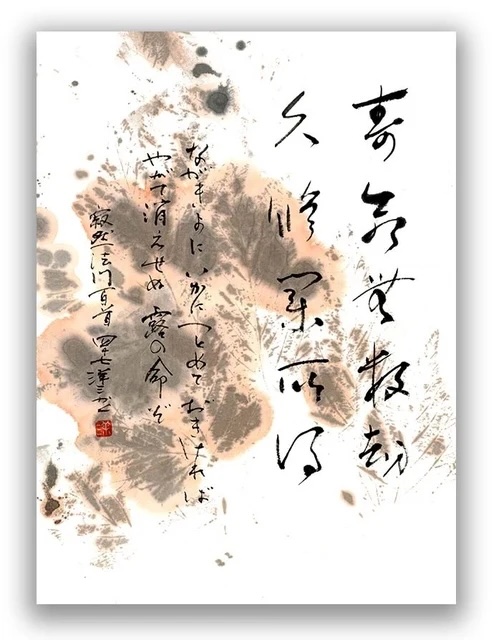 寿命無数劫
久修業所得
ながきよに いかにつとめて おきければ
やがて消えせぬ 露の命ぞ
寂然法門百首 四十七